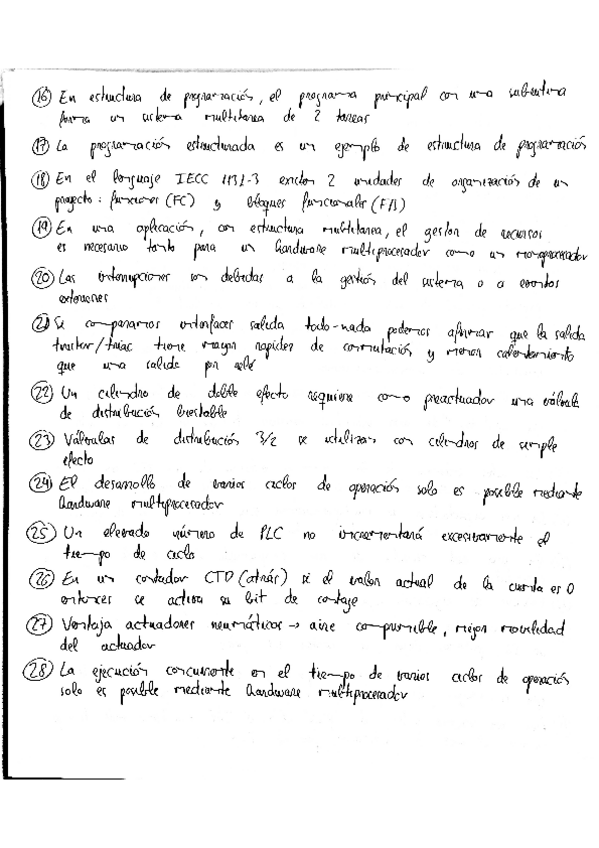 16 En estructura de programación, el programa principal con una subrutina
forma un sistema multitarea de 2 tareas
17 La programación estructurada es un ejemplo de estructura de programación
18 En el lenguaje IECC 1131-3 existen 2 unidades de organización de un
proyecto: funciones (FC) y bloques funcionales (FB)
19 En una aplicación, con estructura multitarea, el gestor de recursos
es necesario tanto para un hardware multiprocesador como un monoprocesador
20 Las interrupciones son debidas a la gestión del sistema o a eventos
exteriores
21 Si comparamos interfaces salida todo-nada podemos afirmar que la salida
transistor/triac tiene mayor rapidez de conmutación y menor calentamiento
que una salida por relé
22 Un cilindro de doble efecto requiere como preactuador una válvula
de distribución biestable
23 Válvulas de distribución 3/2 se utilizan con cilindros de simple
efecto
24 El desarrollo de varios ciclos de operación solo es posible mediante
hardware multiprocesador
25 Un elevado número de PLC no incrementará excesivamente el
tiempo de ciclo
26 En un contador CTD (atrás) si el valor actual de la cuenta es 0
entonces se activa su bit de contaje
27 Ventaja actuadores neumáticos → aire compresible, mejor movilidad
del actuador
28 La ejecución concurrente en el tiempo de varios ciclos de operación
solo es posible mediante hardware multiprocesador